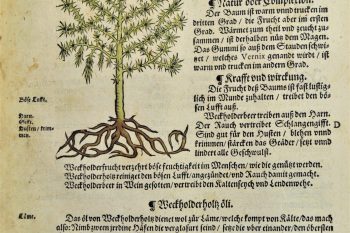 Natur oder Complexion.
Der Baum ist warm vnd trucken im
dritten Grad / die Frucht aber im ersten
Grad. Wärmet zum theil vnd zeucht zu-
sammen / ist derhalben nutz dem Magen.
Das Gummi so auß dem Stauden schwi-
net / welches Vernix genant wirdt / ist
warm vnd trucken im andern Grad.
¶ Krafft vnd würckung.
Die Frucht deß Baums ist fast lustig
sich im Munde zuhalten / treibet den bö-
sen Lufft auß.
Weckholderbeer treiben auß den Harn.
Der Rauch vertreibt Schlangengifft.
Sind gut für den Husten / blehen vnnd
krimmen / stärcken das Geäder / zeyt vnd
lindert alle Geschwulst.
Böse Luffte.
Harn.
Gifft.
Husten / krim-
men.
Weckholderfrucht verzehrt böse feuchtigkeit im Menschen / wie die genützt werden.
Weckholderholtz reiniget den bösen Lufft angezündet / vnd Rauch damit gemacht.
Weckholderbeer in Wein gesotten / vertreibt den Kaltenseych vnd Lendenwehe.
¶ Weckholderholtz öli.
Läme.
Das öl von Weckholderholtz dienet wol zur Läme / welche kompt von Kälte / das mach
also: Nimb zween jrrdine Häfen die verglasurt seind / setze die vber einander / den öbersten